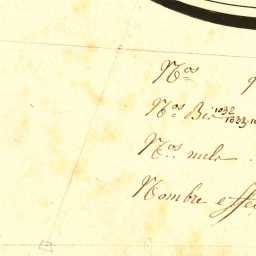 Nos
Nos Bis 1032
1033
Nos mels
Nombre effec